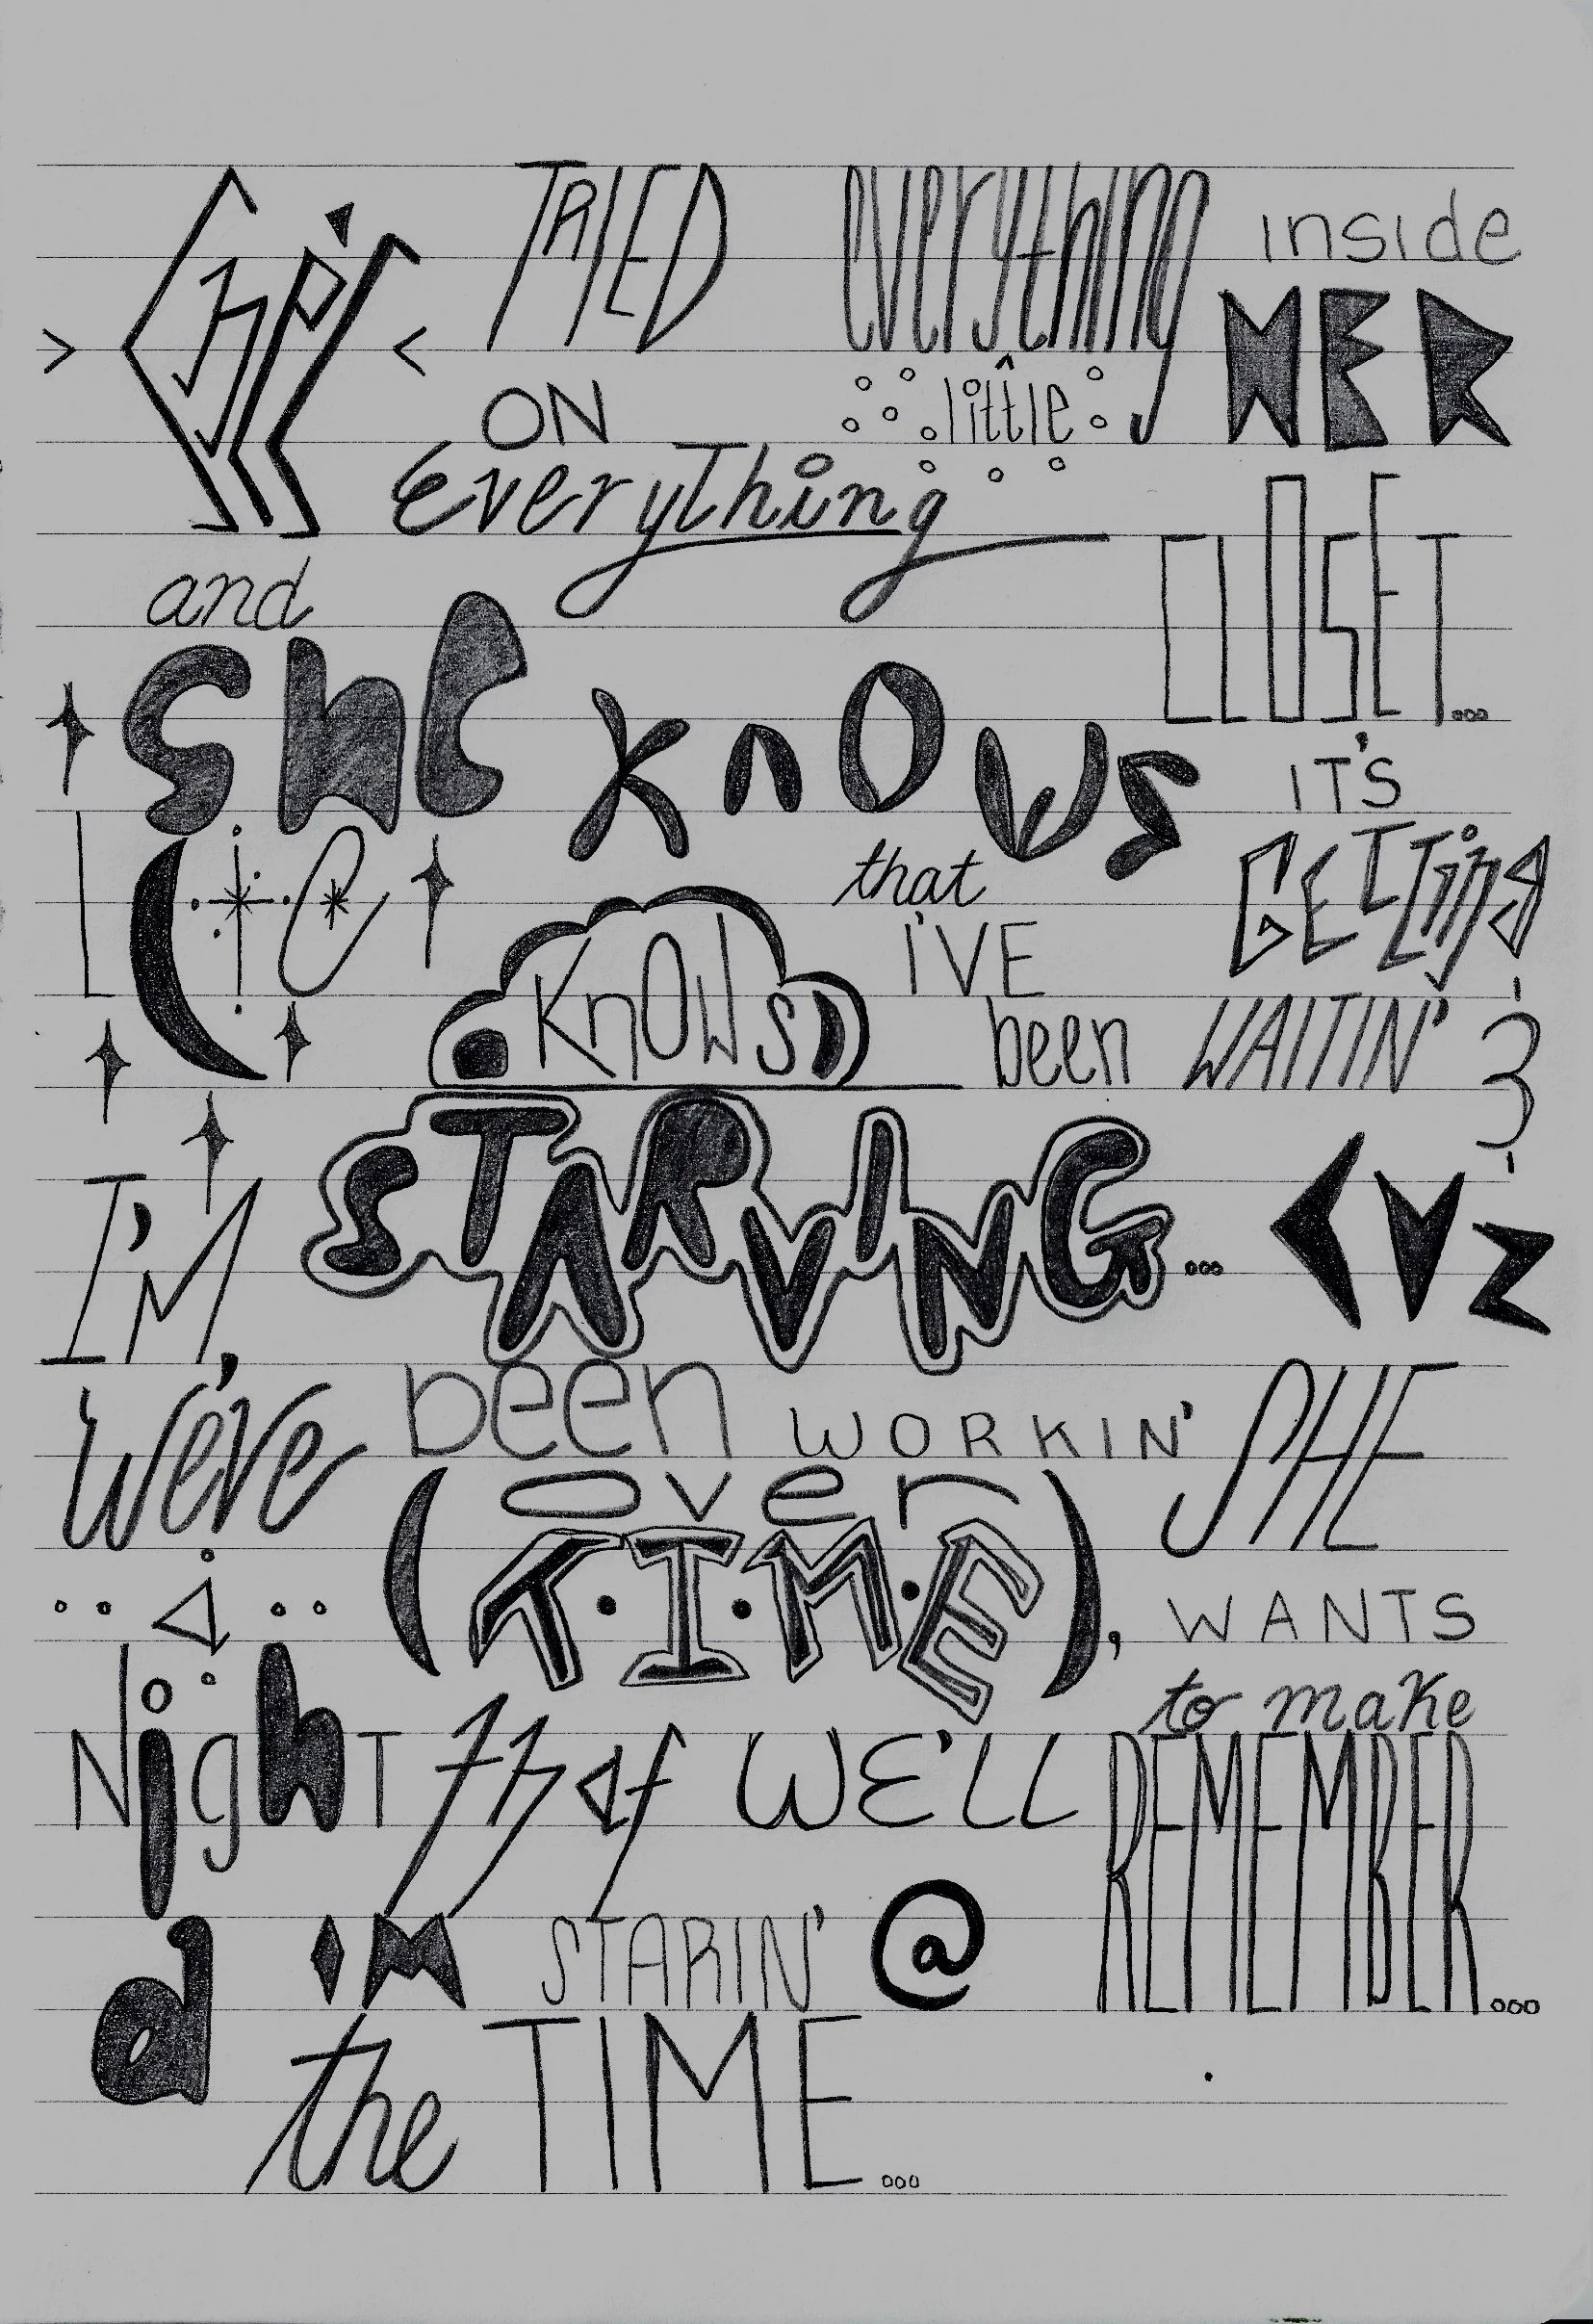 She's TRIED everything inside
ON little HER
EveryThing CLOSET...
and
SHE KnOWS IT'S
that GETTing
KnOWS I'VE
been WAITIN'
I'M STARVING... CUZ
We've been WORKIN' SHE
(over T.I.M.E), WANTS
to make
a NighT that WE'LL REMEMBER...
I'M STARIN' @
the TIME...